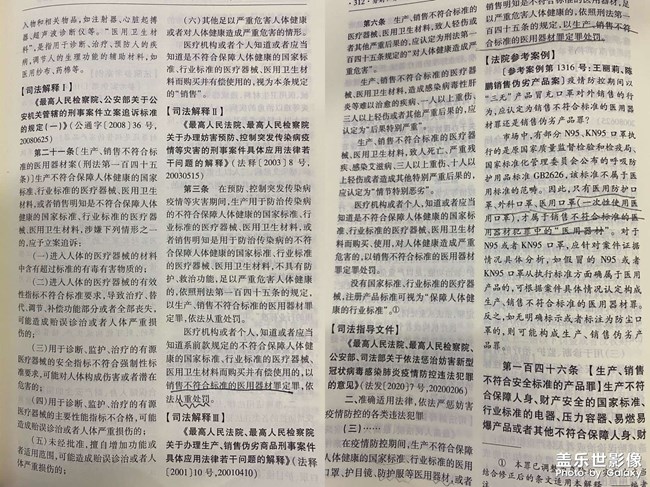 人物和相关物品,如注射器、心脏起搏
器、超声波诊断仪等。“医用卫生材
料”,是指用于诊断、治疗、预防人的疾
病,调节人的生理功能的辅助材料,如
医用纱布、药棉等。
【司法解释Ⅰ】
《最高人民检察院、公安部关于公
安机关管辖的刑事案件立案追诉标准
的规定(一)》(公通字[2008]36号,
20080625)
第二十一条〔生产、销售不符合标
准的医用器材案(刑法第一百四十五
条)〕生产不符合保障人体健康的国家
标准、行业标准的医疗器械、医用卫生
材料,或者销售明知是不符合保障人体
健康的国家标准、行业标准的医疗器
械、医用卫生材料,涉嫌下列情形之一
的,应予立案追诉:
(一)进入人体的医疗器械的材料
中含有超过标准的有毒有害物质的;
(二)进入人体的医疗器械的有效
性指标不符合标准要求,导致治疗、替
代、调节、补偿功能部分或者全部丧失,
可能造成贻误诊治或者人体严重损
伤的;
(三)用于诊断、监护、治疗的有源
医疗器械的安全指标不符合强制性标
准要求,可能对人体构成伤害或者潜在
危害的;
(四)用于诊断、监护、治疗的有源
医疗器械的主要性能指标不合格,可能
造成贻误诊治或者人体严重损伤的;
(五)未经批准,擅自增加功能或
者适用范围,可能造成贻误诊治或者人
体严重损伤的;
(六)其他足以严重危害人体健康
或者对人体健康造成严重危害的情形。
医疗机构或者个人知道或者应当
知道是不符合保障人体健康的国家标
准、行业标准的医疗器械、医用卫生材
料而购买并有偿使用的,视为本条规定
的“销售”。
【司法解释Ⅱ】
《最高人民法院、最高人民检察院
关于办理妨害预防、控制突发传染病疫
情等灾害的刑事案件具体应用法律若
干问题的解释》(法释[2003]8号,
20030515)
第三条 在预防、控制突发传染病
疫情等灾害期间,生产用于防治传染病
的不符合保障人体健康的国家标准、行
业标准的医疗器械、医用卫生材料,或
者销售明知是用于防治传染病的不符
合保障人体健康的国家标准、行业标准
的医疗器械、医用卫生材料,不具有防
护、救治功能,足以严重危害人体健康
的,依照刑法第一百四十五条的规定,
以生产、销售不符合标准的医用器材罪
定罪,依法从重处罚。
医疗机构或者个人,知道或者应当
知道系前款规定的不符合保障人体健
康的国家标准、行业标准的医疗器械、
医用卫生材料而购买并有偿使用的,以
销售不符合标准的医用器材罪定罪,依
法从重处罚。
【司法解释Ⅲ】
《最高人民法院、最高人民检察院
关于办理生产、销售伪劣商品刑事案件
具体应用法律若干问题的解释》(法释
[2001]10号,20010410)
312
第六条 生产、销售不符合标准的
医疗器械、医用卫生材料,致人轻伤或
者其他严重后果的,应认定为刑法第一
百四十五条规定的“对人体健康造成严
重危害”。
生产、销售不符合标准的医疗器
械、医用卫生材料,造成感染病毒性肝
炎等难以治愈的疾病、一人以上重伤、
三人以上轻伤或者其他严重后果的,应
认定为“后果特别严重”。
生产、销售不符合标准的医疗器
械、医用卫生材料,致人死亡、严重残
疾、感染艾滋病、三人以上重伤、十人以
上轻伤或者造成其他特别严重后果的,
应认定为“情节特别恶劣”。
医疗机构或者个人,知道或者应当
知道是不符合保障人体健康的国家标
准、行业标准的医疗器械、医用卫生材
料而购买、使用,对人体健康造成严重
危害的,以销售不符合标准的医用器
材罪定罪处罚。
没有国家标准、行业标准的医疗器
械,注册产品标准可视为“保障人体健
康的行业标准”。①
【司法指导文件】
《最高人民法院、最高人民检察院、
公安部、司法部关于依法惩治妨害新型
冠状病毒感染肺炎疫情防控违法犯罪
的意见》(法发[2020]7号,20200206)
二、准确适用法律,依法严惩妨害
疫情防控的各类违法犯罪
(三)……
在疫情防控期间,生产不符合保障
人体健康的国家标准、行业标准的医用
口罩、护目镜、防护服等医用器材,或者
销售明知是不符合标准的医用器材,足
的,依照刑法第一
百四十五条的规定,以生产、销售不符
合标准的医用器材罪定罪处罚。
【法院参考案例】
[参考案例第1316号:王丽莉、陈
鹏销售伪劣产品案]疫情防控期间以
“三无”产品冒充口罩对外销售的行
为,应当认定为销售伪劣产品罪,还是
认定为销售不符合标准的医用器材
罪?
市场中,有部分N95、KN95口罩执
行的是原国家质量监督检验和检疫局、
国家标准化管理委员会公布的呼吸防
护用品标准GB2626,该标准不属于医
用标准的范畴。因此,只有医用防护口
罩、外科口罩、医用口罩(一次性使用医
用口罩),才属于销售不符合标准的医
用器材犯罪中的“医用器材”。对于
N95或者KN95口罩,应针对案件证据
情况具体分析,如假冒的N95或者
KN95口罩从执行标准方面确属于医用
产品的,可根据案件具体情况认定构成
生产、销售不符合标准的医用器材罪。
反之,如无明确标示或者标注为防尘口
罩的,则可能构成生产、销售伪劣产
品罪。
第一百四十六条【生产、销售
不符合安全标准的产品罪】生产不符
合保障人身、财产安全的国家标准、
行业标准的电器、压力容器、易燃易
爆产品或者其他不符合保障人身、财
① 本罪已调整
结合修正后的条文适用本解释
盖乐世影像
Photo by Galaxy